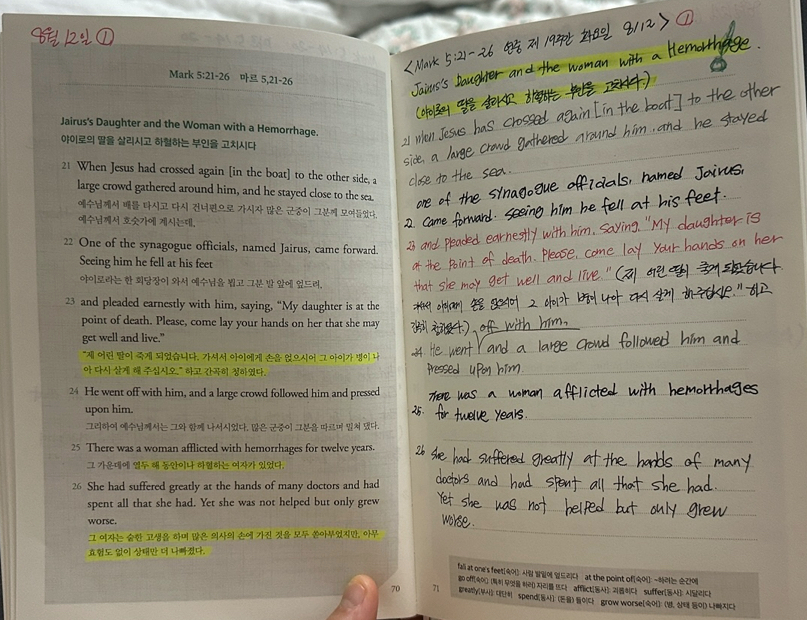 8월 12일 ①
Mark 5:21-26 마르 5,21-26
Jairus's Daughter and the Woman with a Hemorrhage.
야이로의 딸을 살리시고 하혈하는 부인을 고치시다
21 When Jesus had crossed again [in the boat] to the other side, a
large crowd gathered around him, and he stayed close to the sea.
예수님께서 배를 타시고 다시 건너편으로 가시자 많은 군중이 그분께 모여들었다.
예수님께서 호숫가에 계시는데,
22 One of the synagogue officials, named Jairus, came forward.
Seeing him he fell at his feet
야이로라는 한 회당장이 와서 예수님을 뵙고 그분 발 앞에 엎드려,
23 and pleaded earnestly with him, saying, “My daughter is at the
point of death. Please, come lay your hands on her that she may
get well and live.”
“제 어린 딸이 죽게 되었습니다. 가셔서 아이에게 손을 얹으시어 그 아이가 병이 나
아 다시 살게 해 주십시오.” 하고 간곡히 청하였다.
24 He went off with him, and a large crowd followed him and pressed
upon him.
그리하여 예수님께서는 그와 함께 나서시었다. 많은 군중이 그분을 따르며 밀쳐 댔다.
25 There was a woman afflicted with hemorrhages for twelve years.
그 가운데에 열두 해 동안이나 하혈하는 여자가 있었다.
26 She had suffered greatly at the hands of many doctors and had
spent all that she had. Yet she was not helped but only grew
worse.
그 여자는 숱한 고생을 하며 많은 의사의 손에 가진 것을 모두 쏟아부었지만, 아무
효험도 없이 상태만 더 나빠졌다.
70
<Mark 5:21-26 연중 제 19주간 화요일 8/12> ①
Jairus's Daughter and the woman with a Hemorrhage.
(야이로의 딸을 살리시고 하혈하는 부인을 고치시다.)
21 When Jesus has crossed again [in the boat] to the other
side, a large crowd gathered around him, and he stayed
close to the sea.
one of the synagogue officials, named Jairus,
22. came forward. seeing him he fell at his feet.
23 and pleaded earnestly with him. saying. "My daughter is
at the point of death. Please, come lay your hands on her
that she may get well and live." (제 어린 딸이 죽게 되었습니다
가셔서 아이에게 손을 얹으시어 그 아이가 병이 나아 다시 살게 해 주십시오." 하고
간곡히 청하였다.) off with him,
24 He went and a large crowd followed him and
pressed upon him
There was a woman afflicted with hemorrhages
25. for twelve years.
26 She had suffered greatly at the hands of many
doctors and had spent all that she had.
Yet she was not helped but only grew
worse.
fall at one's feet[숙어]: 사람 발밑에 엎드리다 at the point of[숙어]: ~하려는 순간에
go off[숙어] (특히 무엇을 하러) 자리를 뜨다 afflict[동사]: 괴롭히다 suffer[동사]: 시달리다
greatly[부사]: 대단히 spend[동사]: (돈을) 들이다 grow worse[숙어]: (병, 상태 등이) 나빠지다
71